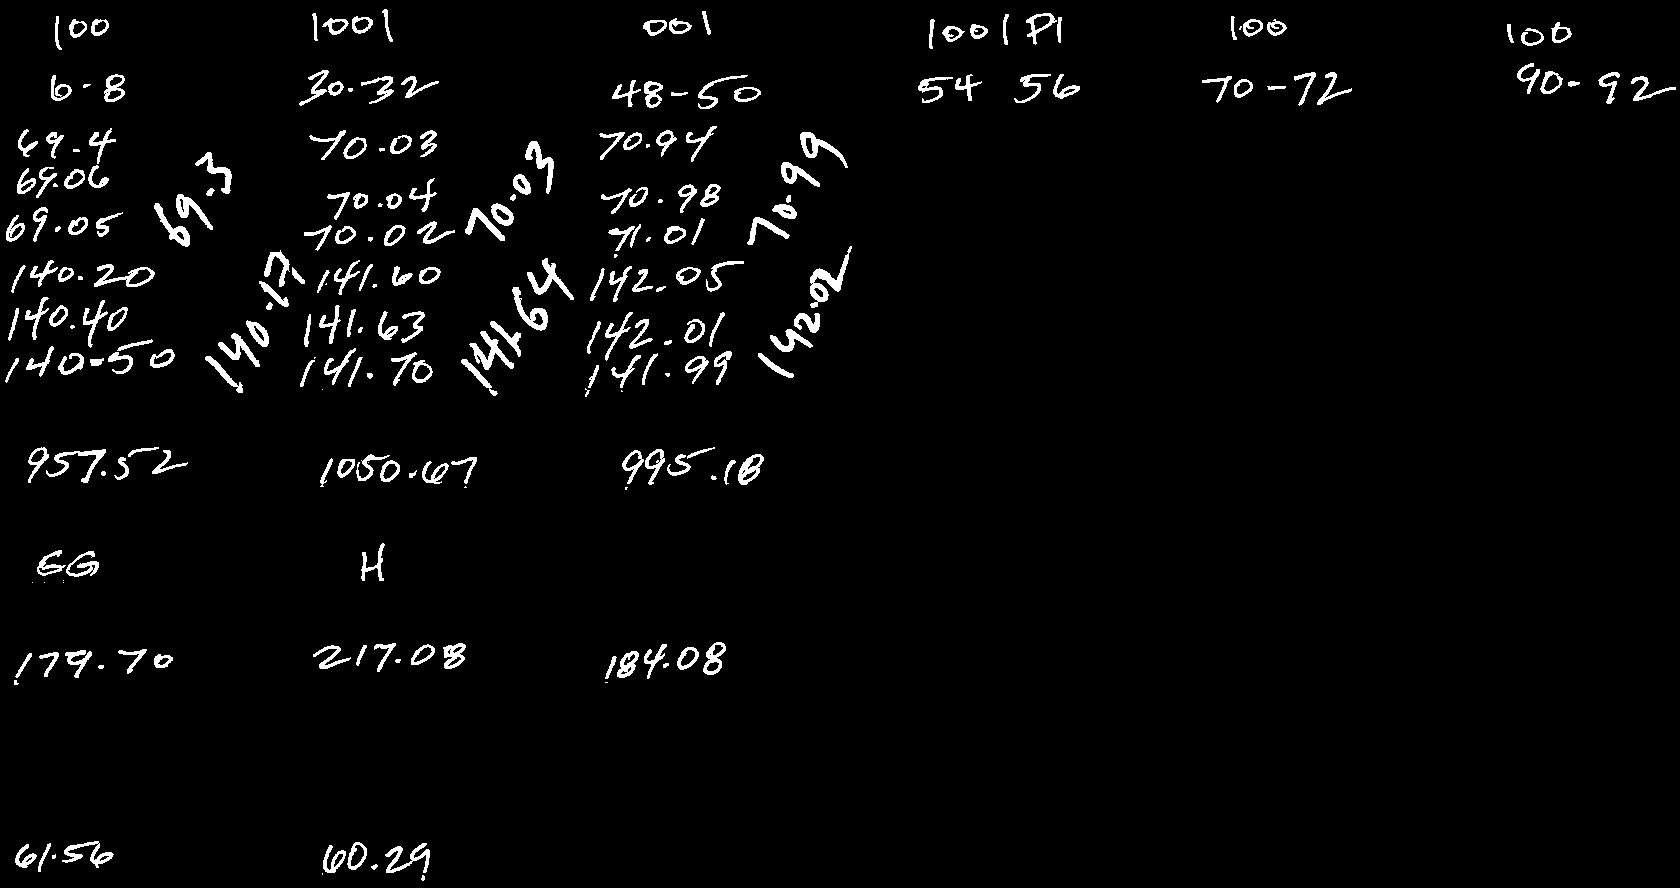 100 1001 001 1001 PI 100 100
6-8 30-32 48-50 54 56 70-72 90-92
69.4 70.03 70.94
69.06 69.3 70.04 70.03 70.98 70.99
69.05 70.02 71.01
140.20 141.60 142.05
140.40 140.17 141.63 141.64 142.01 142.02
140-50 141.70 141.99
957.52 1050.67 995.18
SG H
179.70 217.08 184.08
61.56 60.29